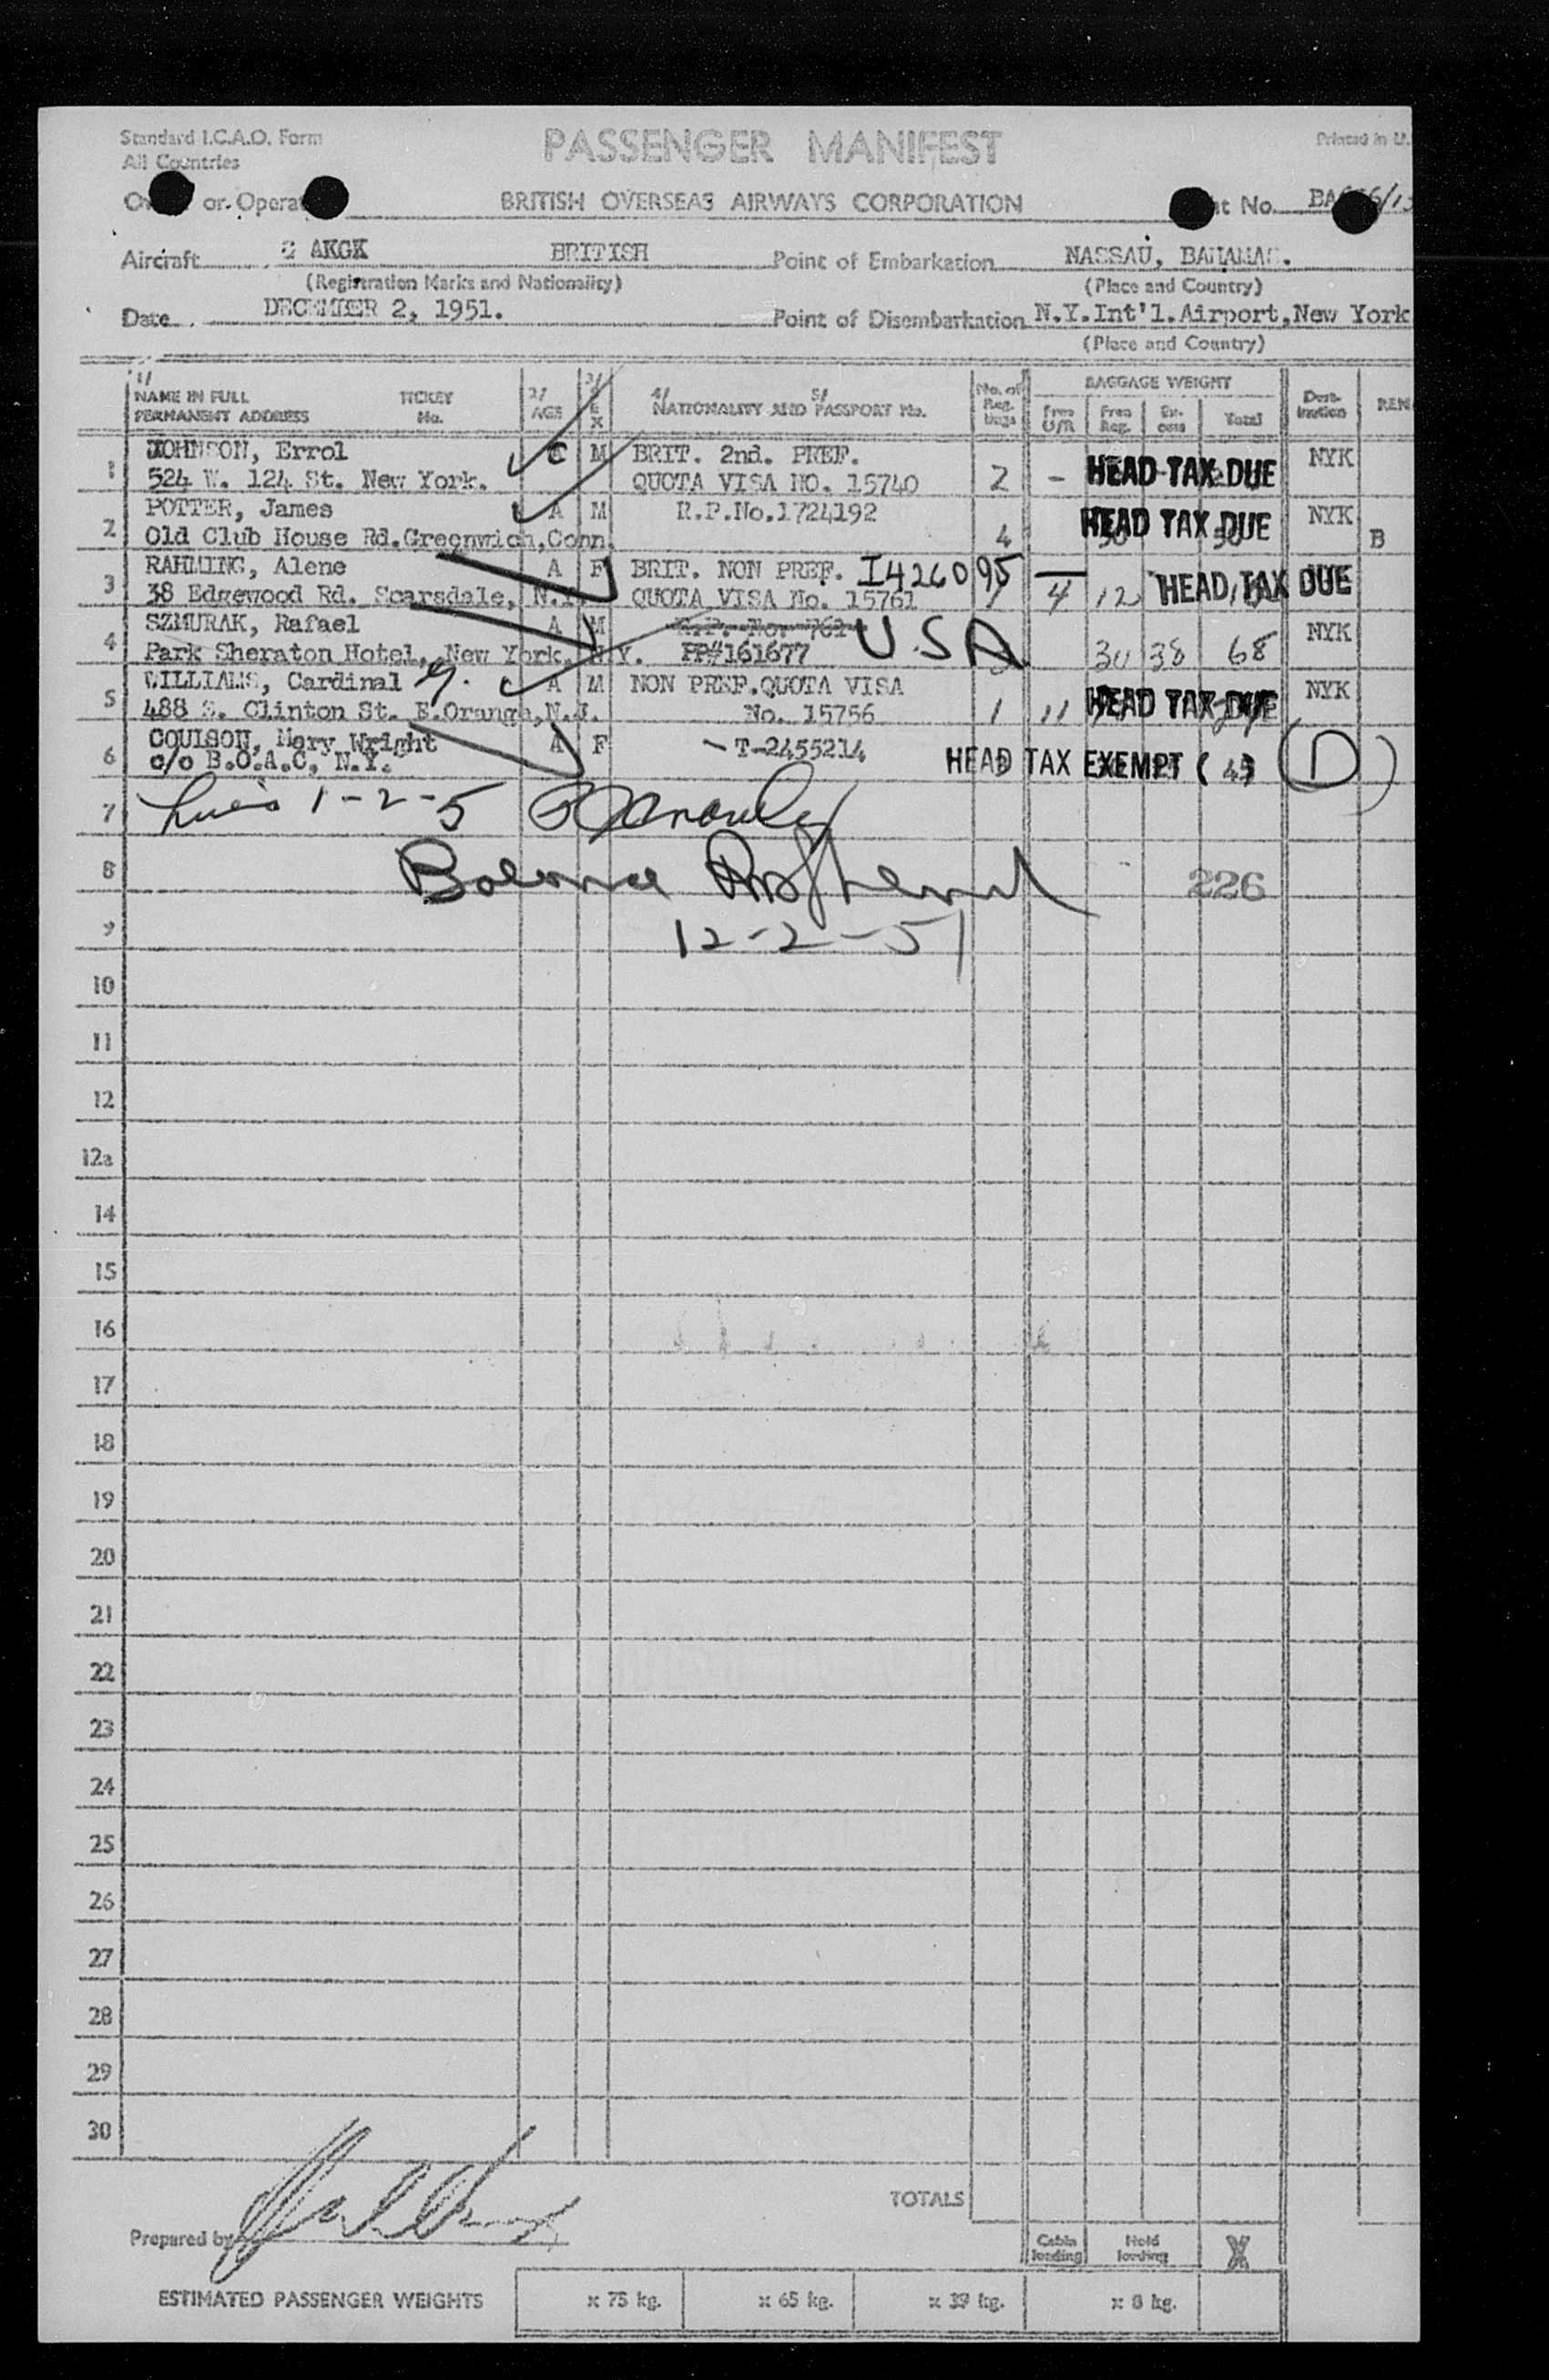 Standard I.C.A.O. Form
All Countries
PASSENGER MANIFEST
Printed in U.
or Opera
BRITISH OVERSEAS AIRWAYS CORPORATION
t No. BA
Aircraft G AKGK BRITISH
(Registration Marks and Nationality)
Point of Embarkation NASSAU, BAHAMAS.
(Place and Country)
Date DECEMBER 2, 1951.
Point of Disembarkation N.Y.Int'l.Airport,New York
(Place and Country)
1/ NAME IN FULL PERMANENT ADDRESS TICKET No. 2/ AGE 3/ SEX 4/ 5/ NATIONALITY AND PASSPORT No. No. of Reg. bags BAGGAGE WEIGHT Free U/R Free Reg. Ex- cess Total Dest- ination REM
1 JOHNSON, Errol C M BRIT. 2nd. PREF. NYK
524 W. 124 St. New York. QUOTA VISA NO. 15740 2 - HEAD TAX DUE
2 POTTER, James A M R.P.No.1724192 HEAD TAX DUE NYK
Old Club House Rd.Greenwich,Conn. 4 B
3 RAHMING, Alene A F BRIT. NON PREF. I426095
38 Edgewood Rd. Scarsdale, N.Y. QUOTA VISA No. 15761 4 12 HEAD TAX DUE
4 SZMURAK, Rafael A M R.P. No. 761 U.S.A NYK
Park Sheraton Hotel, New York, N.Y. PP#161677 30 38 68
5 WILLIAMS, Cardinal A M NON PREF.QUOTA VISA NYK
488 S. Clinton St. E.Orange,N.J. No. 15756 1 11 HEAD TAX DUE
6 COULSON, Mary Wright A F T-2455214
c/o B.O.A.C, N.Y. HEAD TAX EXEMPT ( ) (D)
7 1-2-5
8 226
9 12-2-51
10
11
12
12a
14
15
16
17
18
19
20
21
22
23
24
25
26
27
28
29
30
TOTALS
Prepared by
Cabin loading Hold loading X
ESTIMATED PASSENGER WEIGHTS x 75 kg. x 65 kg. x 39 kg. x 8 kg.